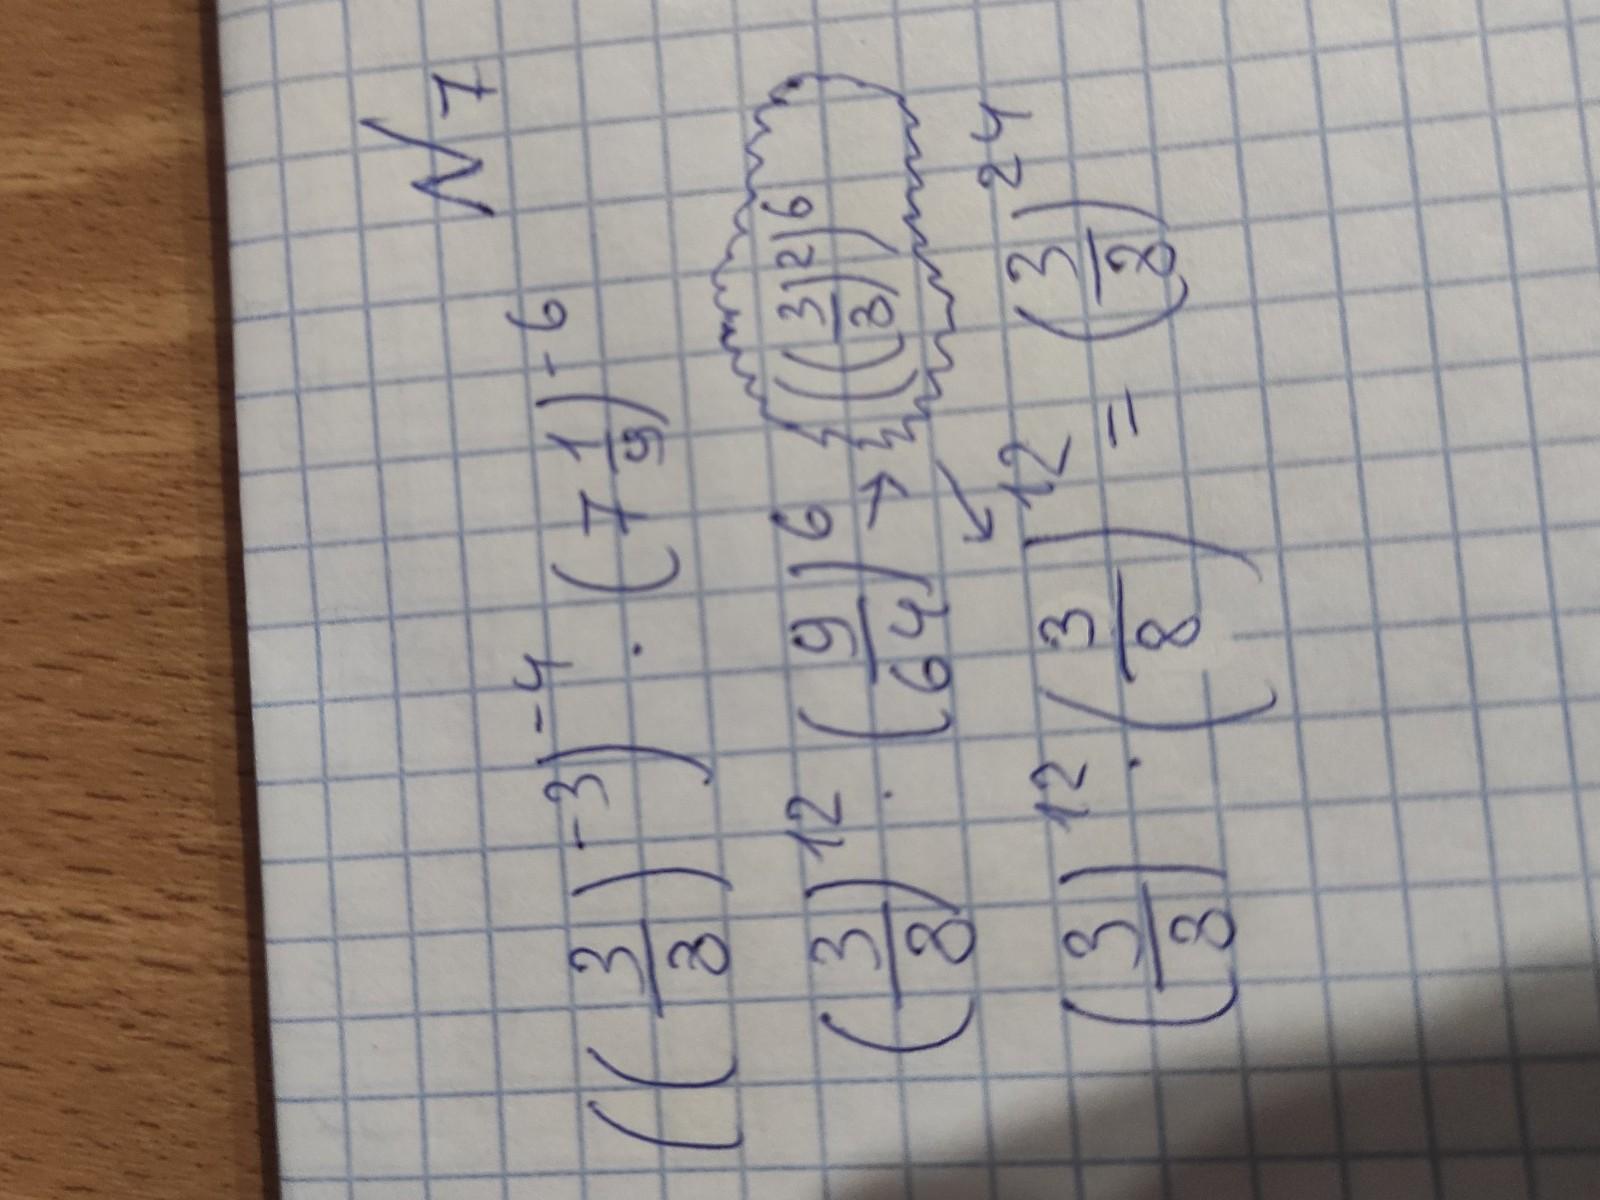 N 7
((3/8)^-3)^-4 · (7 1/9)^-6
(3/8)^12 · (9/64)^6 > ((3/8)^2)^6
(3/8)^12 · (3/8)^12 = (3/8)^24